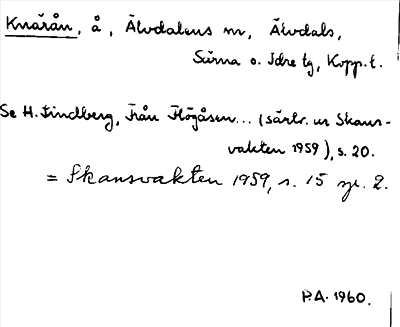 Knärån, å, Älvdalens sn, Älvdals,
Särna o. Idre tg, Kopp. l.
Se H. Lindberg, Från Högåsen... (särtr. ur Skans-
vakten 1959), s. 20.
= Skansvakten 1959, s. 15 sp. 2.
P.A. 1960.